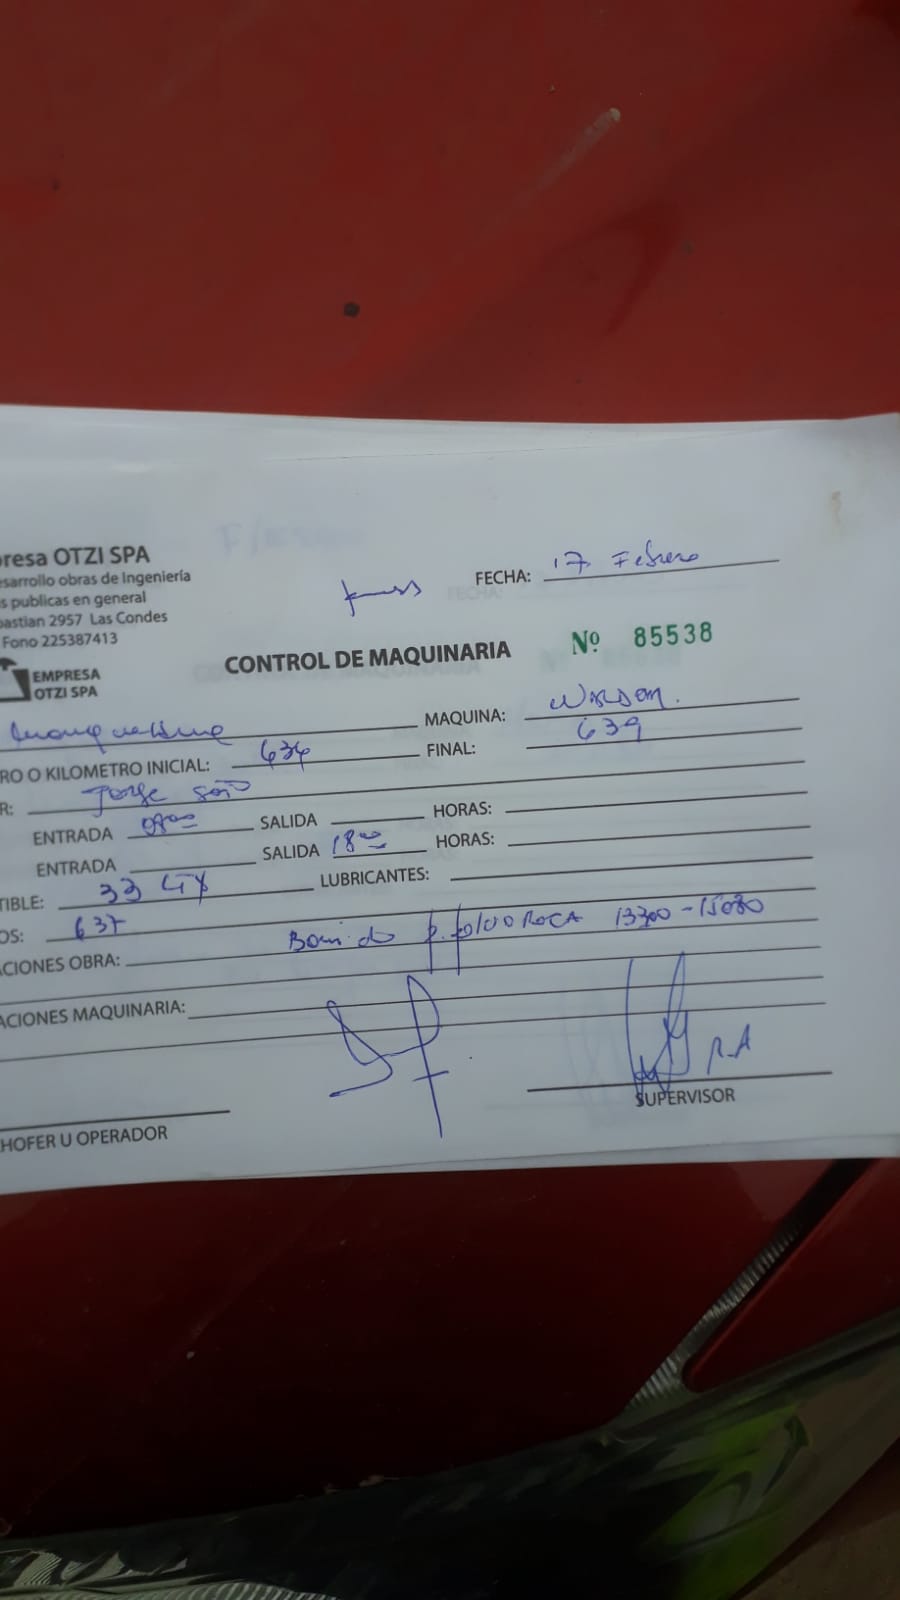 presa OTZI SPA
esarrollo obras de Ingeniería
s publicas en general
bastian 2957 Las Condes
Fono 225387413
EMPRESA
OTZI SPA
FECHA: 17 Febrero
CONTROL DE MAQUINARIA Nº 85538
MAQUINA:
RO O KILOMETRO INICIAL: 634 FINAL: 639
R: Jorge Soto
ENTRADA 0800 SALIDA HORAS:
ENTRADA SALIDA 1800 HORAS:
TIBLE: 33 LTS LUBRICANTES:
OS: 637
ACIONES OBRA: 13300-15080
ACIONES MAQUINARIA:
R.A
HOFER U OPERADOR SUPERVISOR